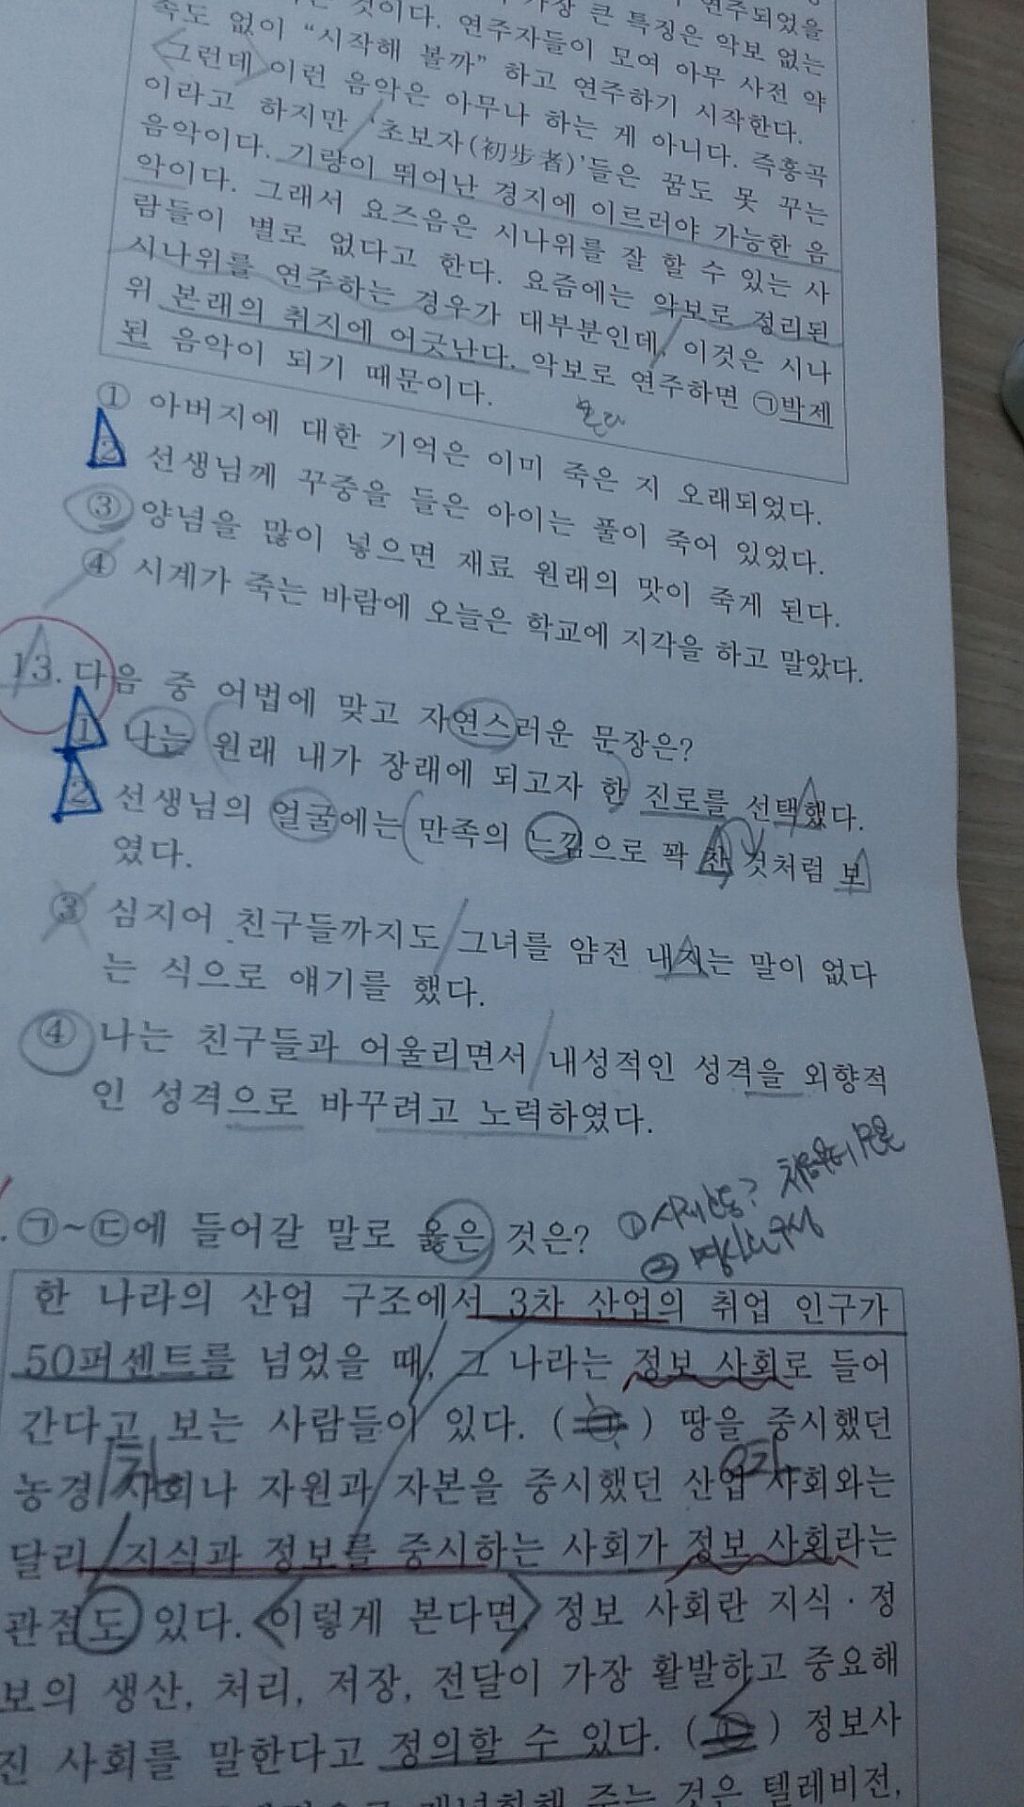 것이다. 연주자들이 모여 아무 사전 약
가장 큰 특징은 악보 없는
연주되었을
속도 없이 “시작해 볼까” 하고 연주하기 시작한다.
그런데 이런 음악은 아무나 하는 게 아니다. 즉흥곡
이라고 하지만 ‘초보자(初步者)’들은 꿈도 못 꾸는
음악이다. 기량이 뛰어난 경지에 이르러야 가능한 음
악이다. 그래서 요즈음은 시나위를 잘 할 수 있는 사
람들이 별로 없다고 한다. 요즘에는 악보로 정리된
시나위를 연주하는 경우가 대부분인데, 이것은 시나
위 본래의 취지에 어긋난다. 악보로 연주하면 ㉠박제
된 음악이 되기 때문이다.
① 아버지에 대한 기억은 이미 죽은 지 오래되었다.
② 선생님께 꾸중을 들은 아이는 풀이 죽어 있었다.
③ 양념을 많이 넣으면 재료 원래의 맛이 죽게 된다.
④ 시계가 죽는 바람에 오늘은 학교에 지각을 하고 말았다.
13. 다음 중 어법에 맞고 자연스러운 문장은?
① 나는 원래 내가 장래에 되고자 한 진로를 선택했다.
② 선생님의 얼굴에는 만족의 느낌으로 꽉 찬 것처럼 보
였다.
③ 심지어 친구들까지도 그녀를 얌전 내지는 말이 없다
는 식으로 얘기를 했다.
④ 나는 친구들과 어울리면서 내성적인 성격을 외향적
인 성격으로 바꾸려고 노력하였다.
. ㉠~㉢에 들어갈 말로 옳은 것은?
한 나라의 산업 구조에서 3차 산업의 취업 인구가
50퍼센트를 넘었을 때, 그 나라는 정보 사회로 들어
간다고 보는 사람들이 있다. ( ㉠ ) 땅을 중시했던
농경 사회나 자원과 자본을 중시했던 산업 사회와는
달리 지식과 정보를 중시하는 사회가 정보 사회라는
관점도 있다. 이렇게 본다면, 정보 사회란 지식·정
보의 생산, 처리, 저장, 전달이 가장 활발하고 중요해
진 사회를 말한다고 정의할 수 있다. ( ㉡ ) 정보사
주는 것은 텔레비전,